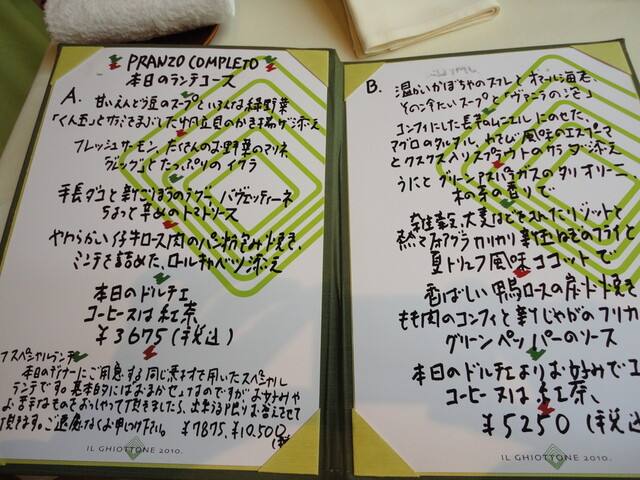 PRANZO COMPLETO
本日のランチコース
A. 甘いえんどう豆のスープといろんな緑野菜
「くん玉」とカラスミまぶした小つ貝のかき揚げ添え
フレッシュサーモン、たくさんのお野菜のマリネ、
とたっぷりのイクラ
手長ダコと新ごぼうのラグー、バヴェッティーネ
ちょっと辛めのトマトソース
やわらかい仔牛ロース肉のパン粉包み焼き、
ミンチを詰めた、ロールキャベツ添え
本日のドルチェ
コーヒー又は紅茶
¥3675(税込)
スペシャルランチ
本日のディナーにご用意する同じ素材で用いたスペシャル
ランチです。基本的にはおまかせですのですがお好みや
お苦手なものをおっしゃって頂きましたら、出来る限りお答えさせて
頂きます。ご遠慮なくお申しつけ下さい。¥7875、¥10,500
IL GHIOTTONE 2010.
B. 温かいかぼちゃのスフレとオマール海老、
その冷たいスープと「ヴァニラの泡」
コンフィにした長芋のムニエルにのせた、
マグロのタルタル、わさび風味のエスプーマ
とクスクス入りスプラウトのサラダ添え
うにとグリーンアスパラガスのタリオリーニ、
木の芽の香りで
雑穀、大麦はとを入れたリゾットと
熱々フォアグラ カリカリ新玉ねぎのフライと
夏トリュフ風味 ココットで
香ばしい鴨ロースの炭火焼き
もも肉のコンフィと新じゃがのフリカ
グリーンペッパーのソース
本日のドルチェよりお好みで
コーヒー又は紅茶、
¥5250(税込
IL GHIOTTONE 2010.